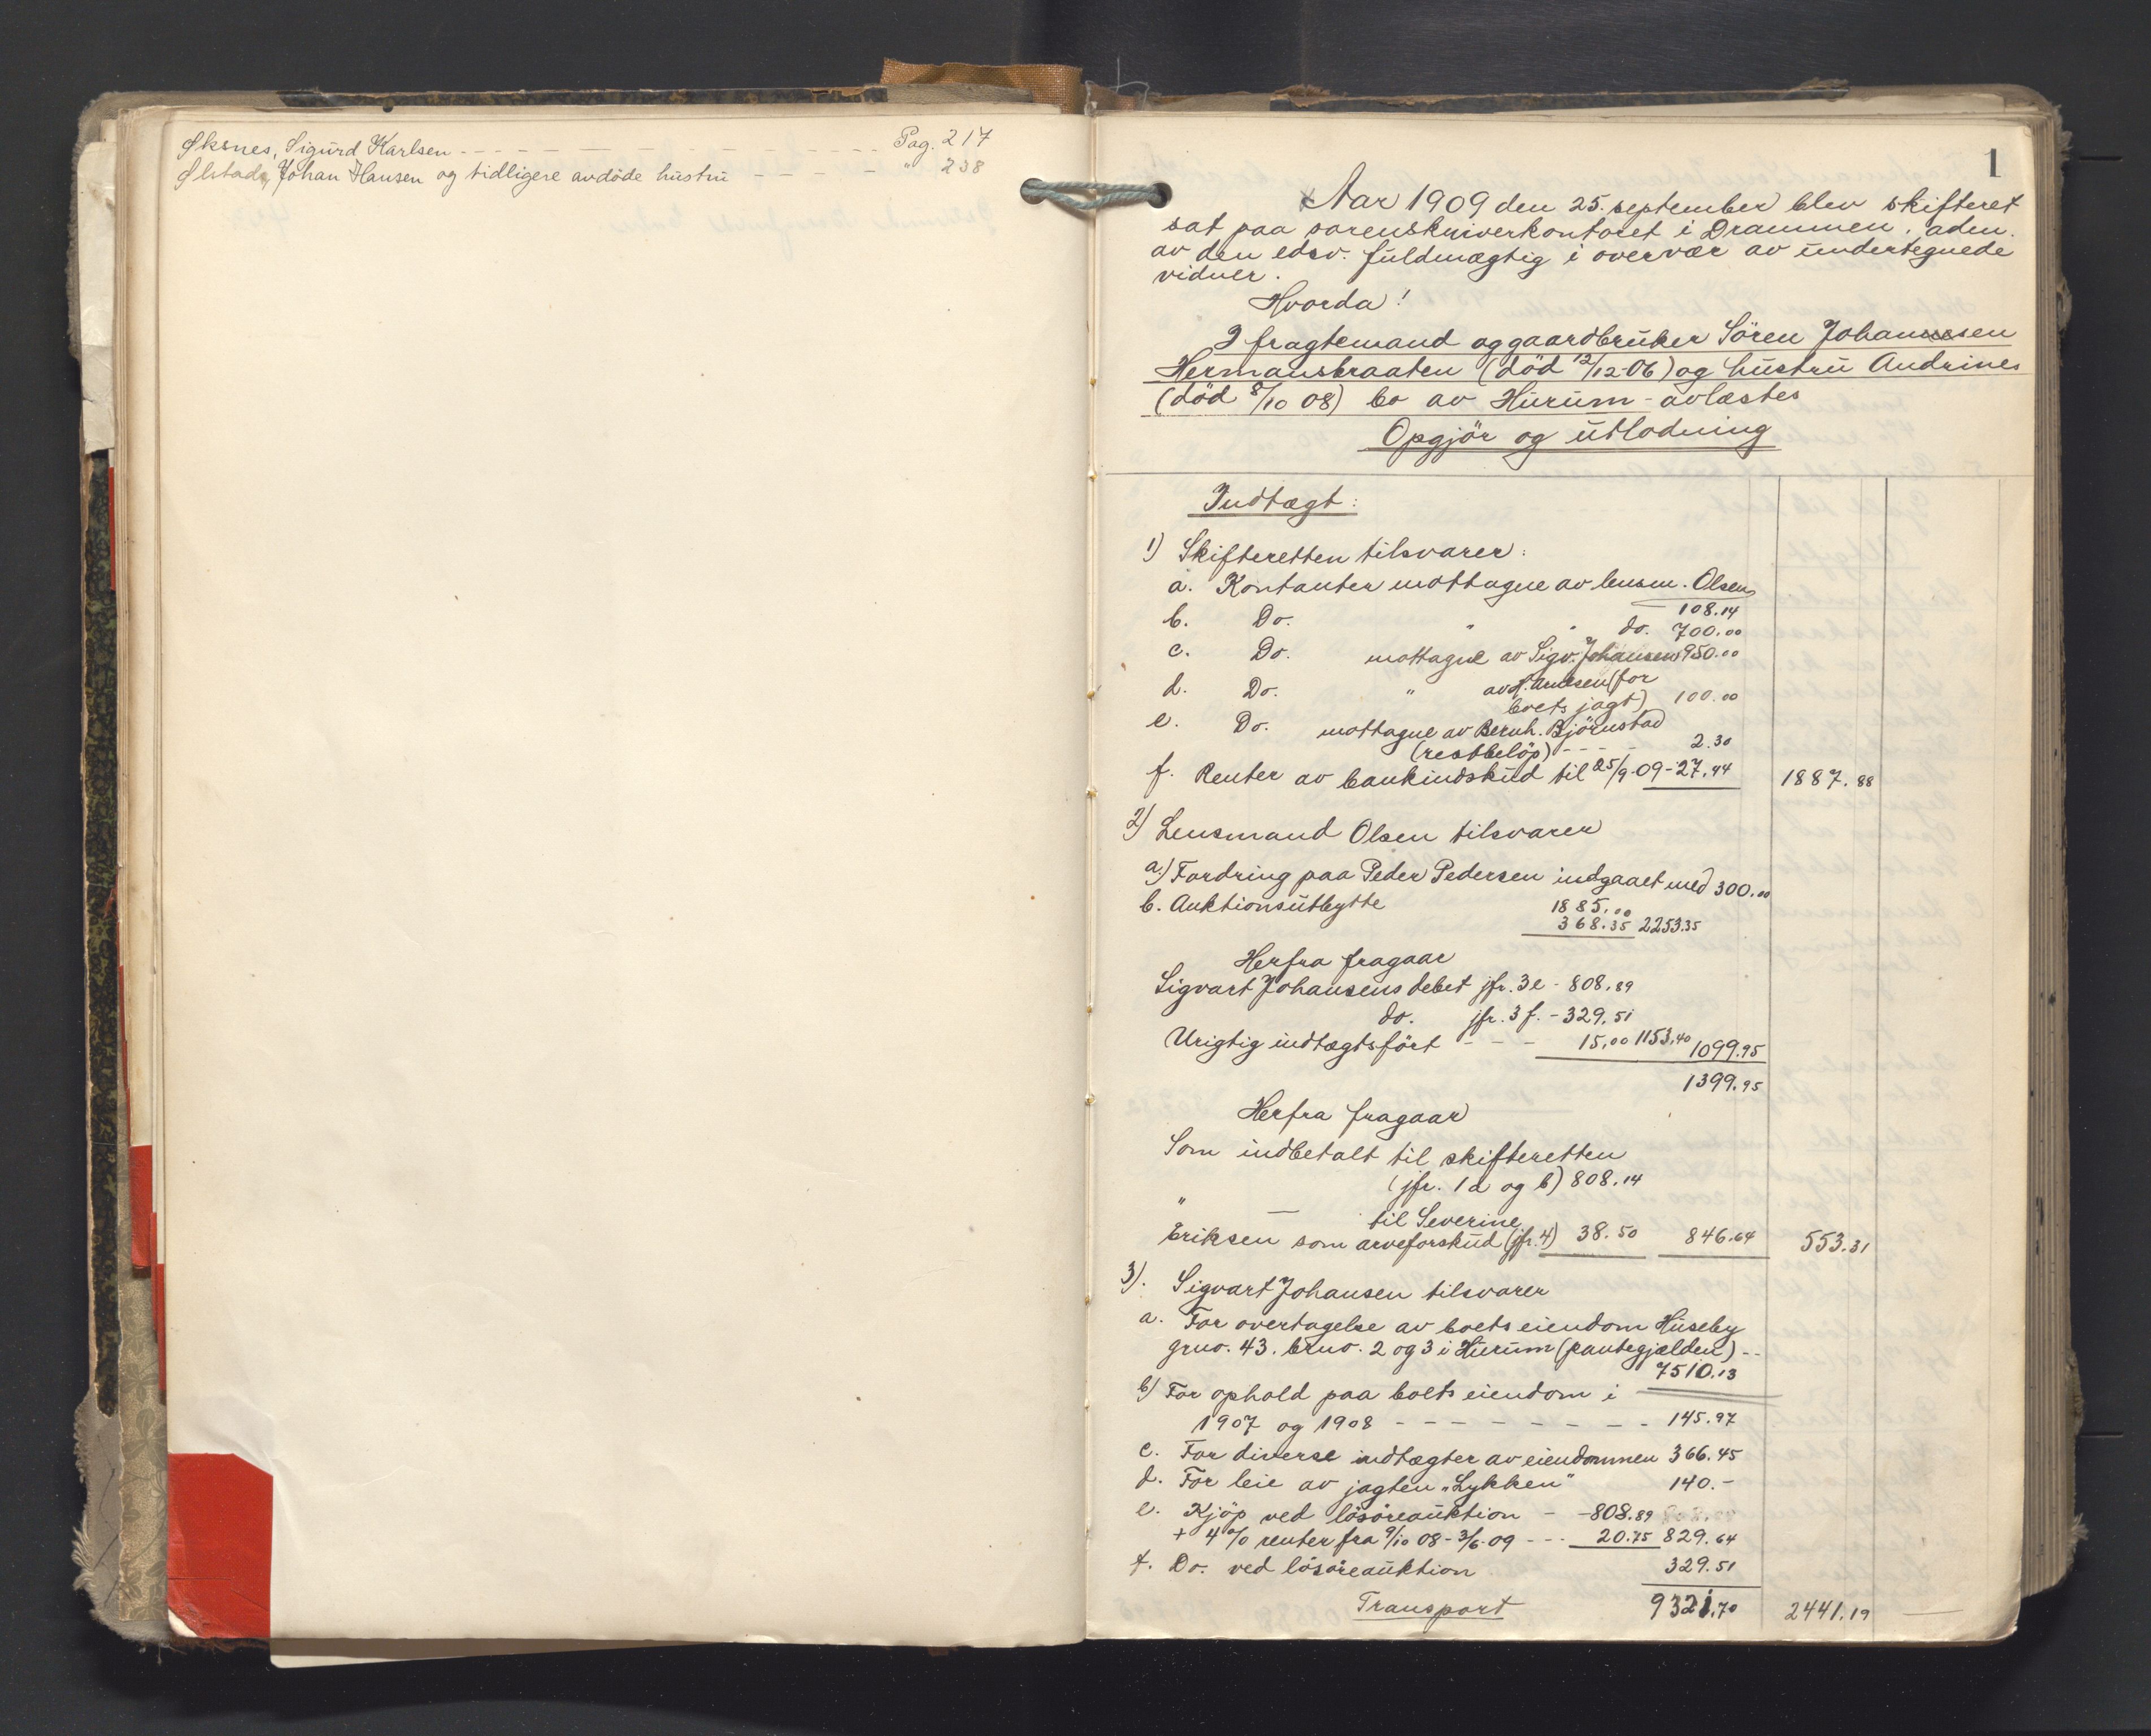 Øksnes, Sigurd Karlsen - - - - - - - - - - - - - Pag. 217
Ølstad, Johan Hansen og tidligere avdöde hustru - - - - - " 238
1
Aar 1909 den 25. september blev skifteret
sat paa sorenskriverkontoret i Drammen, adm.
av den edsv. fuldmægtig i overvær av undertegnede
vidner.
Hvorda!
I fragtemand og gaardbruker Sören Johannesen
Hermansbraaten (död 12/12-06) og hustru Andrines
(död 8/10 08) bo av Hurum - avlæstes
Opgjör og utlodning
Indtægt:
1) Skifteretten tilsvarer:
a. Kontanter mottagne av lensm. Olsen
108.14
b. Do. " " do. 700.00
c. Do. mottagne av Sigv. Johansen 950.00
d. Do. " av (for
boets jagt) 100.00
e. Do. mottagne av Bernh. Björnstad
(restbelöp) - - - - 2.30
f. Renter av bankindskud til 25/9-09 - 27.44 1887.88
2) Lensmand Olsen tilsvarer
a.) Fordring paa Peder Pedersen indgaaet med 300.00
b. Auktionsutbytte 1885.00
368.35 2253.35
Herfra fragaar
Sigvart Johansens debet jfr. 3e - 808.89
do. jfr. 3 f. - 329.51
Urigtig indtægtsfört - - - 15.00 1153.40 1099.95
1399.95
Herfra fragaar
Som indbetalt til skifteretten
(jfr. 1a og b) 808.14
" — til Severine
Eriksen som arveforskud (jfr. 4) 38.50 846.64 553.31
3). Sigvart Johansen tilsvarer
a. For overtagelse av boets eiendom Huseby
grno. 43. brno. 2 og 3 i Hurum (pantegjælden) - -
7510.13
b) For ophold paa boets eiendom i
1907 og 1908 - - - - - - - - - 145.97
c. For diverse indtægter av eiendommen 366.45
d. For leie av jagten „Lykken" 140.-
e. Kjöp ved lösöreauktion - - 808.89
+ 4 % renter fra 9/10 08 - 3/6-09 - - - 20.75 829.64
f. Do. ved lösöreauktion 329.51
Transport 9321.70 2441.19